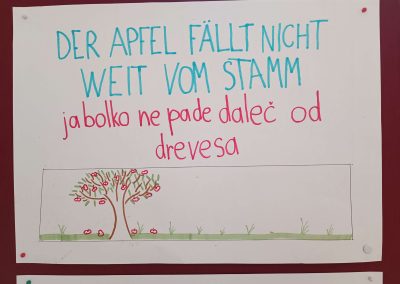 DER APFEL FÄLLT NICHT
WEIT VOM STAMM
jabolko ne pade daleč od
drevesa